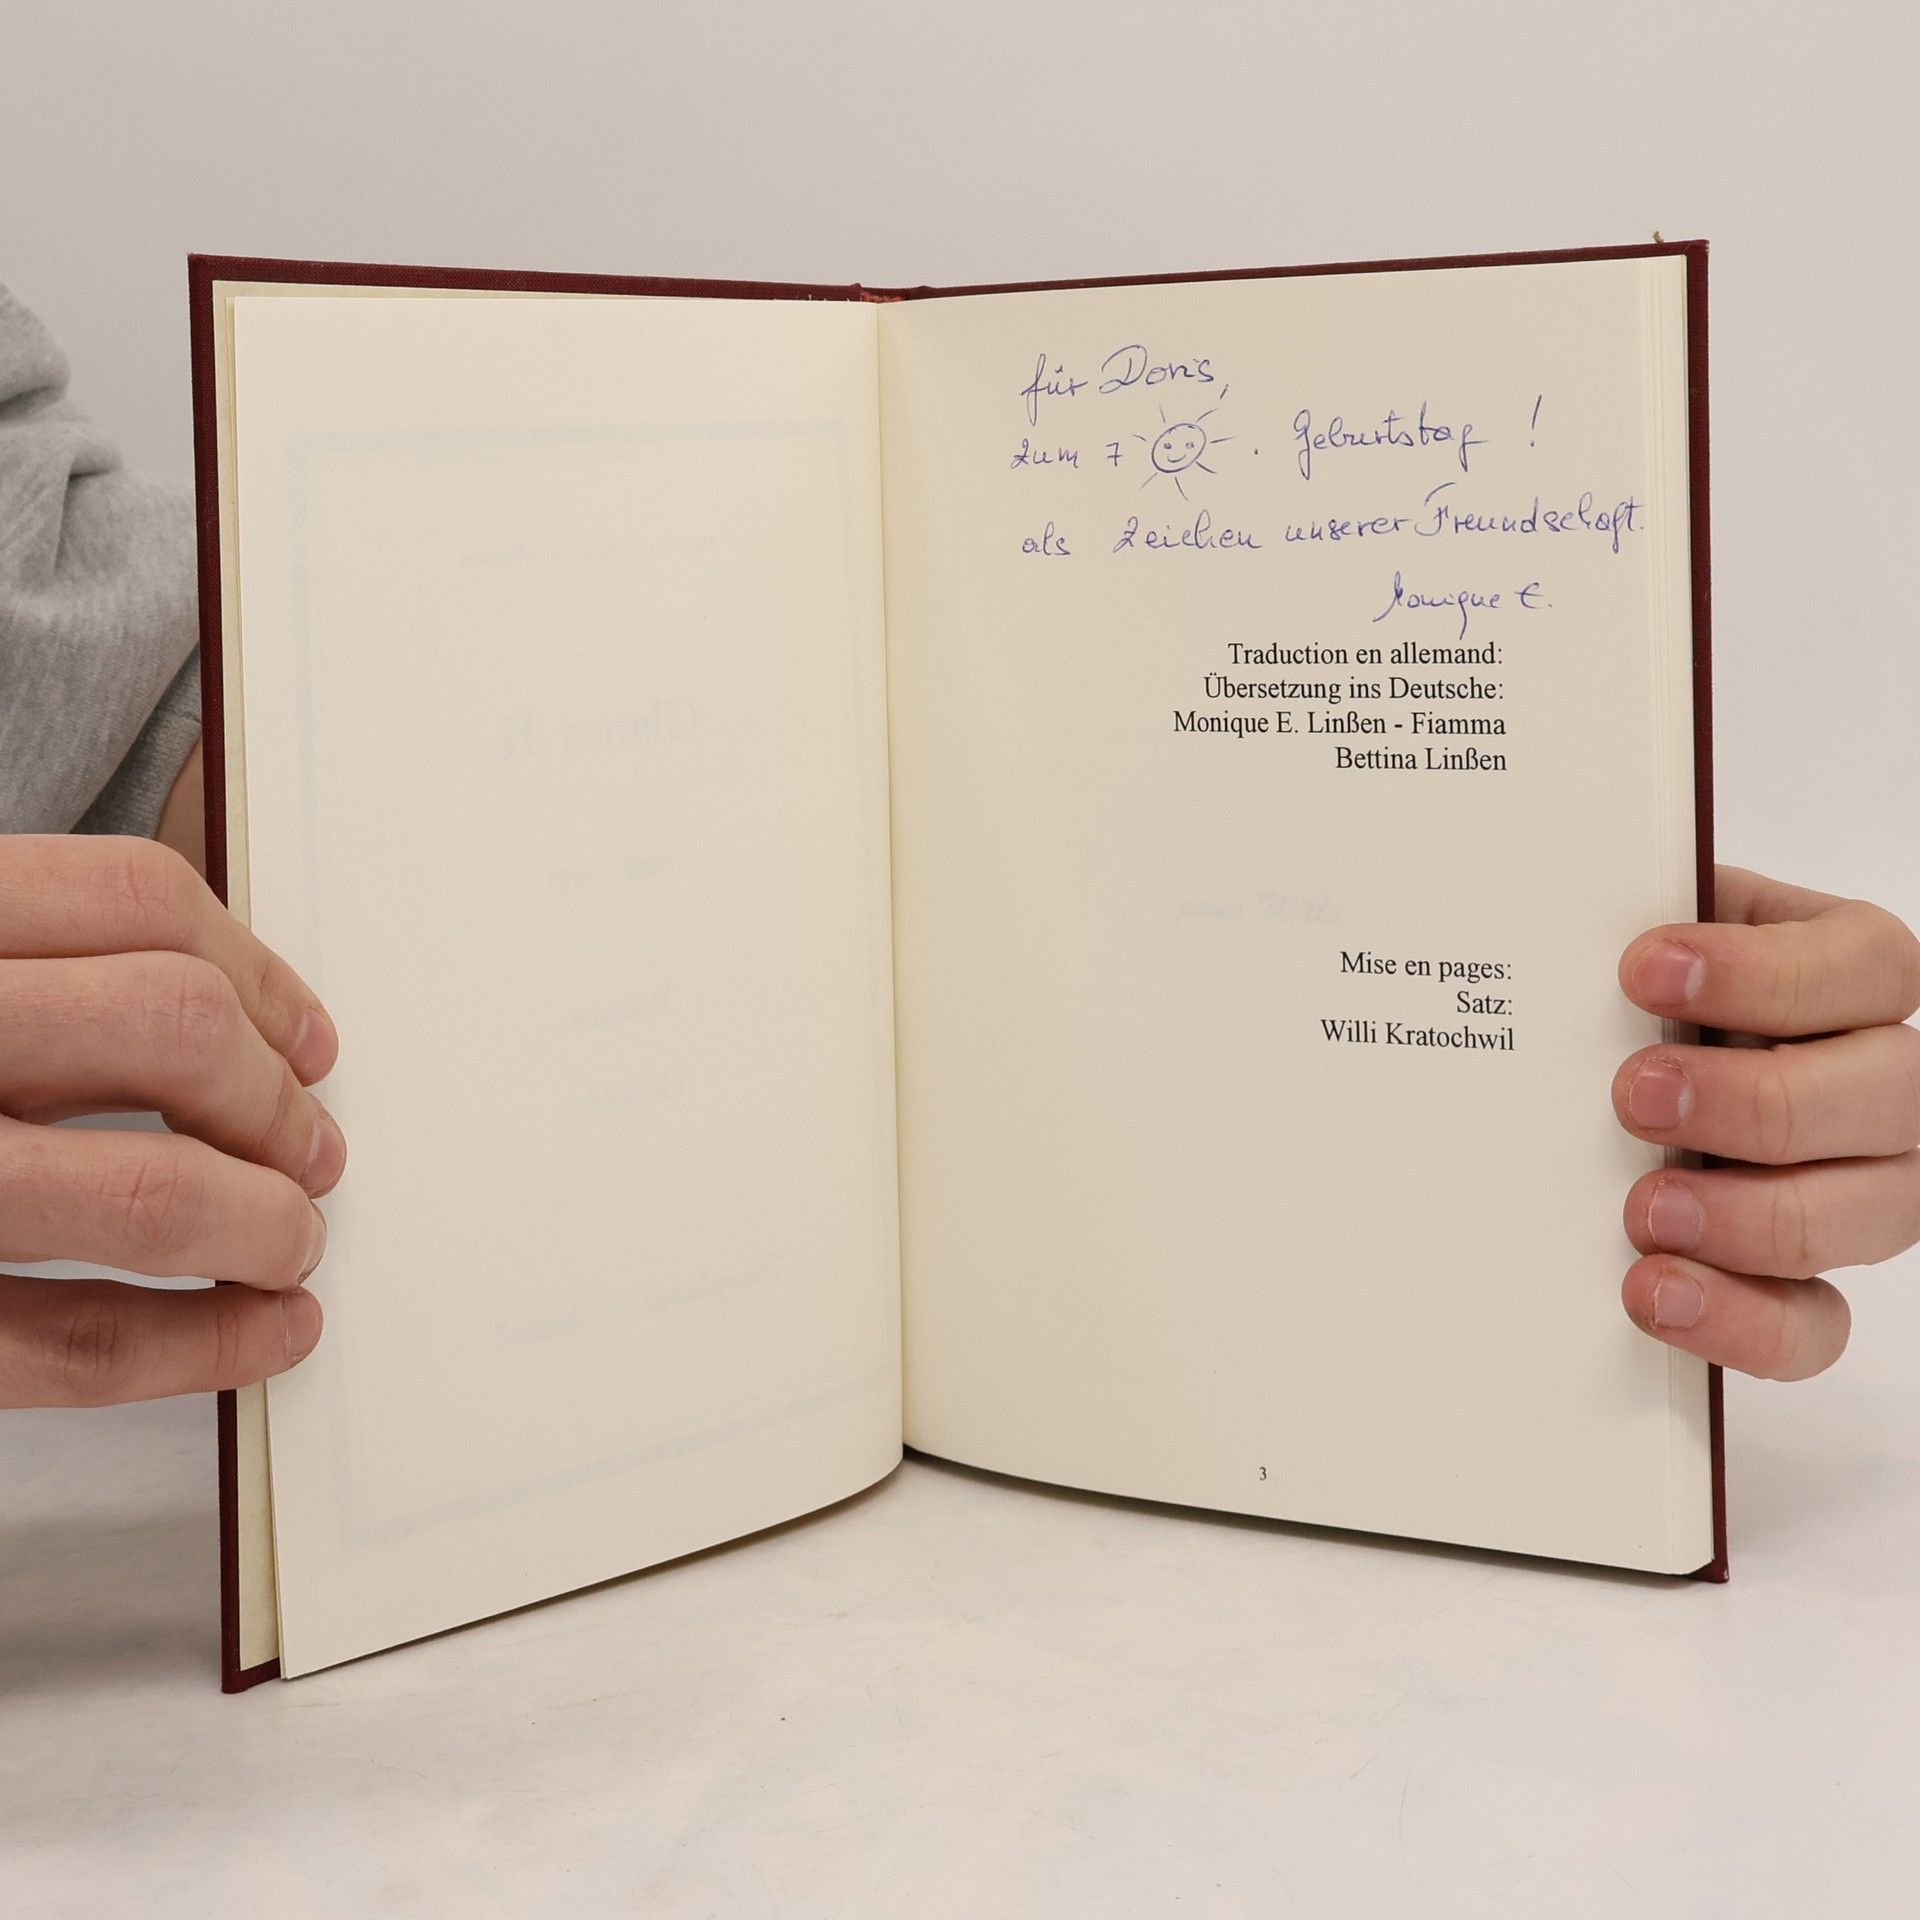 für Doris,
zum 7 . Geburtstag !
als Zeichen unserer Freundschaft.
Monique E.
Traduction en allemand:
Übersetzung ins Deutsche:
Monique E. Linßen - Fiamma
Bettina Linßen
Mise en pages:
Satz:
Willi Kratochwil
3